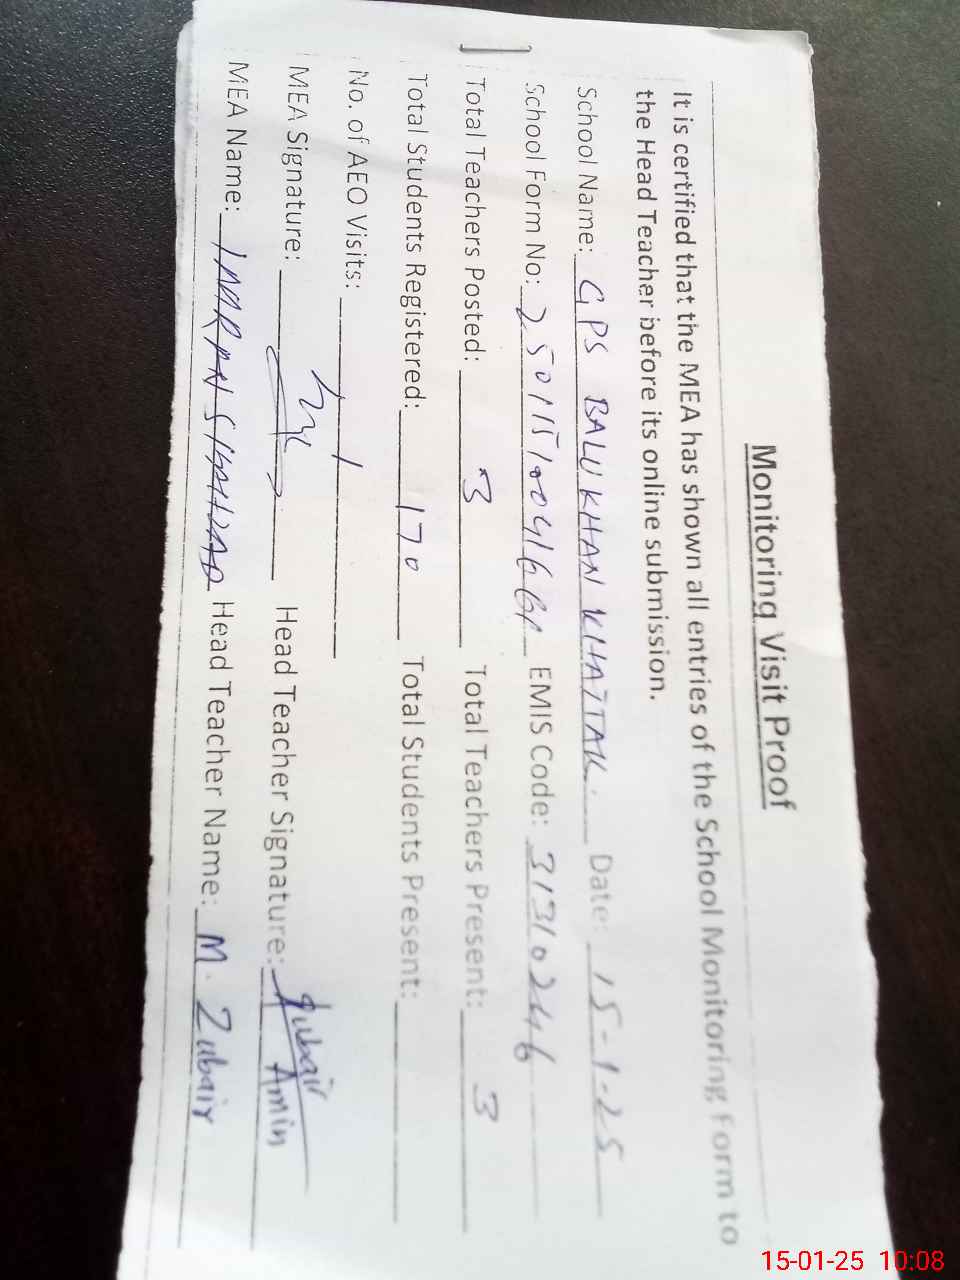 Monitoring Visit Proof
It is certified that the MEA has shown all entries of the School Monitoring Form to
the Head Teacher before its online submission.
School Name: GPS BALU KHAN KHATTAK. Date: 15-1-25
School Form No: EMIS Code: 31310246
Total Teachers Posted: 3 Total Teachers Present: 3
Total Students Registered: 170 Total Students Present:
No. of AEO Visits: 1
MEA Signature: Head Teacher Signature: Zubair Amin
MEA Name: IMRAN SHAHZAD Head Teacher Name: M. Zubair
15-01-25 10:08